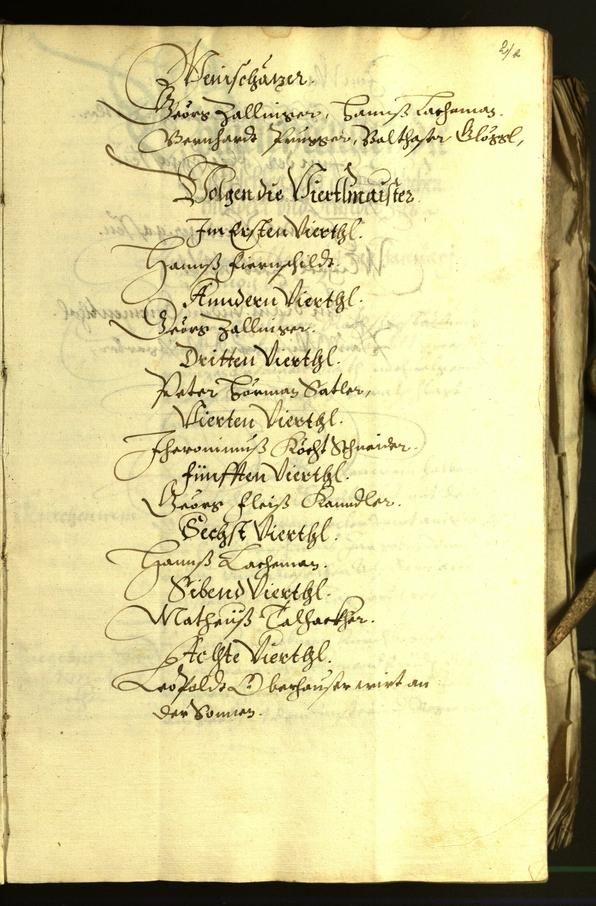 Weinschäzer.
Geörg Zallinger, Hannß Lacheman.
Bernhardt Prugger, Balthaser Glöggl,
Volgen die Viertlmaister.
Im Ersten Vierthl.
Hannß Eiernschildt.
Anndern Vierthl.
Geörg Zallinger.
Dritten Vierthl.
Peter Hörman Satler,
Vierten Vierthl.
Jheronimuß Köchl Schneider.
fünfften Vierthl.
Geörg fleiß Kanndler.
Sechst Vierthl.
Hannß Lacheman.
Sibend Vierthl.
Matheüß Talhackher.
Achte Vierthl.
Leopoldt Oberhauser wirt an
der Sonnen.